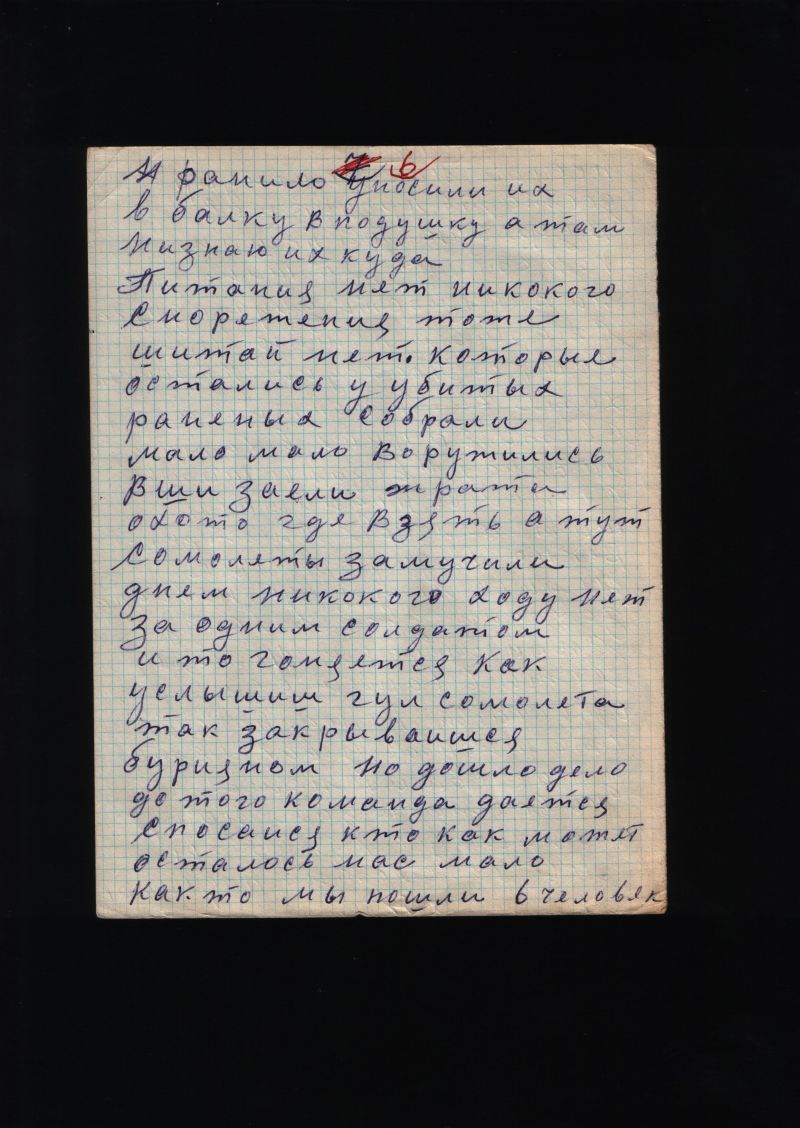 6
И ранило уносили их
в балку в подушку а там
низнаю их куда
Питания нет никокого
Сноретения тоже
шитай нет. которые
остались у убитых
раненых собрали
мало мало воружились
вши заели жрата
охото где взять а тут
сомолеты замучили
днем никокого ходу нет
за одним солдатом
и то гоняется как
услышиш гул сомолета
так закрываишся
буряном но дошло дело
до того команда дается
Спосаися кто как может
осталось нас мало
Как то мы пошли 6 человяк